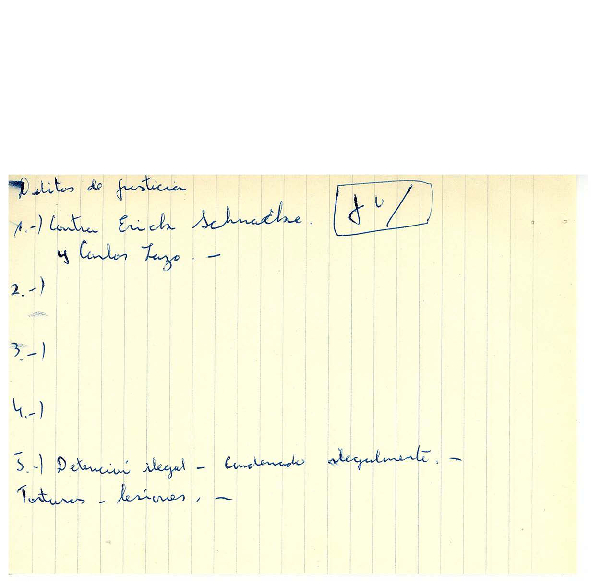 Delitos de justicia
1.-) Contra Erick Schnacke.
y Carlos Lazo. -
2.-)
3.-)
4.-)
5.-) Detención ilegal - Condenado ilegalmente. -
Torturas - lesiones. -